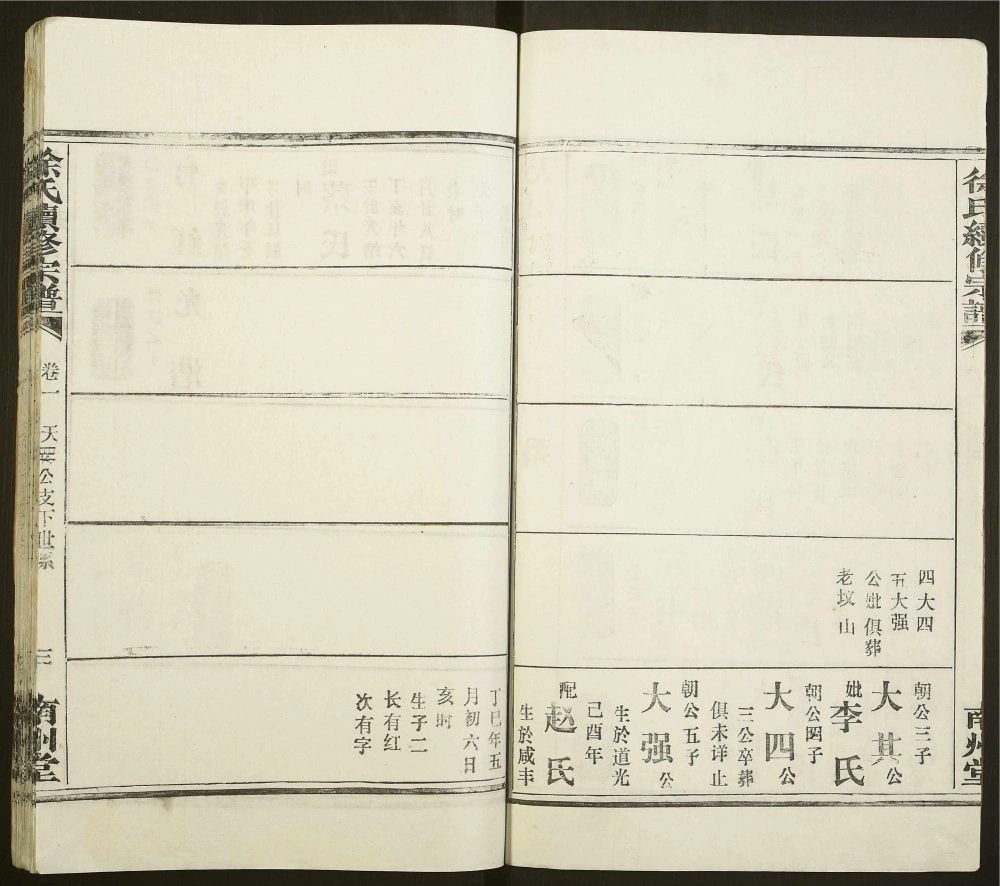 徐氏續修宗譜
南州堂
四大四
五大强
公妣俱葬
老坟山
朝公三子
大其公
妣李氏
朝公四子
大四公
三公卒葬
俱未详止
朝公五子
大强公
生於道光
己酉年
配赵氏
生於咸丰
丁巳年五
月初六日
亥时
生子二
长有红
次有字
徐氏續修宗譜
卷一
公支下世系
三
南州堂